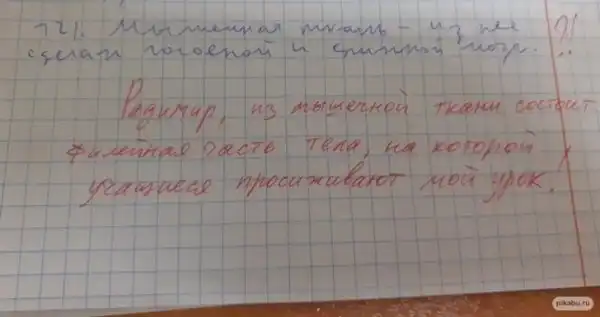 12). Мышечная ткань - из нее ?!
сделан головной и спинной мозг.
Радимир, из мышечной ткани состоит
филейная часть тела, на которой
учащиеся просиживают мой урок!
pikabu.ru